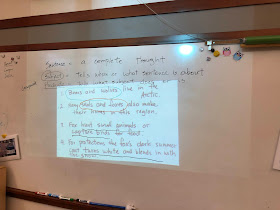 Sentence - a complete thought
Subject - tells who or what sentence is about
Predicate - tells what subject does
1. Bears and walrus live in the
Arctic.
2. Many seals and foxes also make
their homes in this region.
3. Fox hunt small animals or
capture birds for food.
4. For protection, the fox's dark summer
coat turns white and blends in with
the snow.